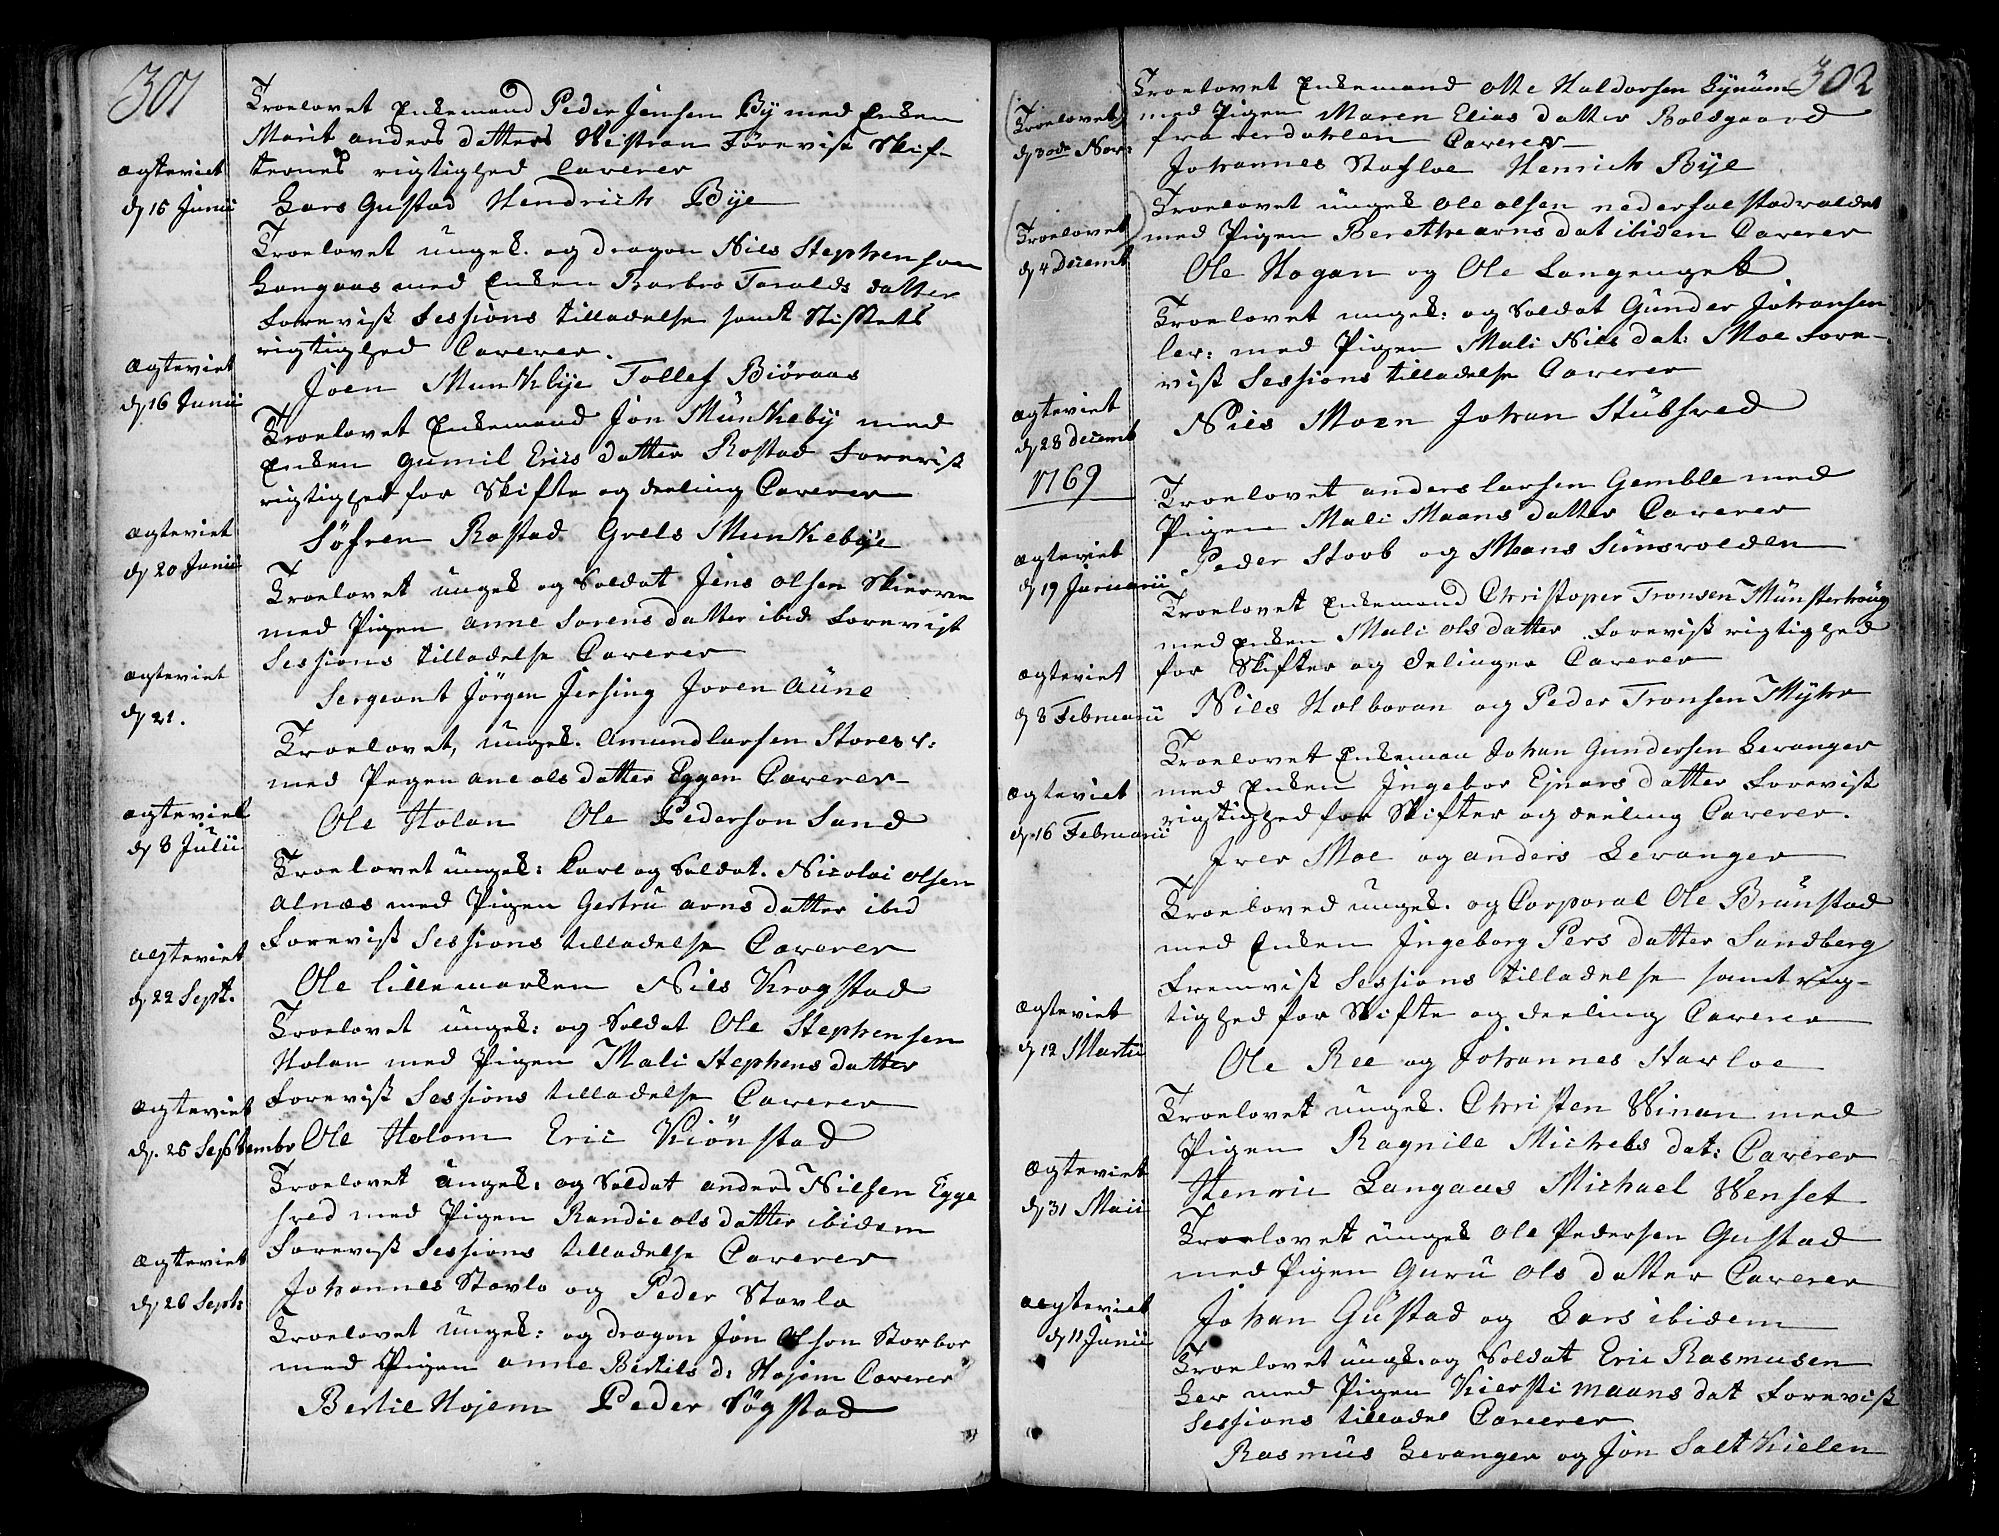 301
Troelovet Enkemand Peder Jensen By med Enken
Marit anders datters Vistran Forevist Skif-
Ægteviet
ternes rigtighed Caverer
d 15 Junii
Lars Gustad Hendrich Bye
Troelovet ungk. og dragon Nils Stephensen
Langaas med Enken Barbro Taralds datter
Forevist Sessions tilladelse samt Skiftets
rigtighed Caverer.
Ægteviet
d 16 Junii
Joen Munkebye Tollef Biöraas
Troelovet Enkemand Jon Munkeby med
Enken gumil Erics datter Rostad Forevist
rigtighed for Skifte og deeling Caverer
Ægteviet
d 20 Junii
Söfren Rostad Grels Munkebye
Troelovet ungk og Soldat Jens olsen Skierve
med Pigen anne Sorens datter ibid Forevist
Sessions tilladelse Caverer
Ægteviet
d 21.
Sergeant Jörgen Jersing Joren Aune
Troelovet, ungk. Amund larsen Stores v:
med Pegen ane ols datter Eggen Caverer
Ægteviet
d 8 Julii
Ole Holan Ole Pederson Sand
Troelovet ungk: Karl og Soldat. Nicolai olsen
alnæs med Pigen Gertru arns datter ibid
Forevist Sessions tilladelse Caverer
Ægteviet
d 22 Sept.
Ole lillemarken Nils Krogstad
Troelovet ungk: og Soldat Ole Stephensen
Holan med Pigen Mali Stephens datter
Forevist Sessions tilladelse Caverer
Ægteviet
d. 25 Septembr
Ole Holom Eric Kiönstad
Troelovet ungk: og Soldat anders Nilsen Egge
hred med Pigen Randie ols datter ibidem
Forevist Sessions tilladelse Caverer
Ægteviet
d 26 Sept:
Johannes Stavlo og Peder Stavlo
Troelovet ungk: og dragon Jon Olson Storbor
med Pigen anne Bertils d: Hojem Caverer
Bertil Hojem Peder Sögstad
302
Troelovet Enkemand Otte Haldorsen Bynäm
(Troelovet)
d 30de Nov:
med Pigen Maren Elias datter Balsgaard
fra verdahlen Caverer
Johannes Stafloe Henrich Bye
(Troelovet)
d 4 Decemb
Troelovet ungk Ole olsen nederhalstadvaldet
med Pigen Berethe arns dat ibiden Caverer
Ole Hogan og Ole Langenget
Troelovet ungk: og Soldat Gunder Johansen
ler: med Pigen Mali Nils dat: Moe Fore-
vist Sessions tilladelse Caverer
Ægteviet
d 28 Decemb
Niels Moen Johan Stubhred
1769
Troelovet anders larsen Gemble med
Pigen Mali Maans datter Caverer
Ægteviet
d 19 Januarii
Peder Stoob og Maans Sunsvolden
Troelovet Enkemand Christoper Tronsen Munsterhoug
med Enken Mali ols datter Forevist rigtighed
for Skifter og delinger Caverer
Ægteviet
d 8 Februarii
Nils Holboran og Peder Tronsen Myhr
Troelovet Enkeman Johan Gundersen Levanger
med Enken Ingebor Ejnars datter Forevist
rigtighed for Skifter og deeling Caverer.
Ægteviet
d. 16 Februarii
Iver Moe og anders Levanger
Troeloved ungk. og Corporal Ole Brunstad
med Enken Ingeborg Pers datter Sundberg
Fremvist Sessions tilladelse samt rig-
tighed for Skifte og deeling Caverer
Ægteviet
d 12 Martii
Ole Ree og Johannes Starloe
Troelovet ungk. Christen Winan med
Pigen Ragnile Michels dat: Caverer
Ægteviet
d 31 Maii
Henric Langaas Michael Wenset
Troelovet ungk Ole Pedersen Gustad
med Pigen Guru ols datter Caverer
Ægteviet
d 11 Junii
Johan Gustad og Lars ibidem
Troelovet ungk. og Soldat Eric Rasmusen
Ler med Pigen Kiersti maans dat Forevist
Sessions tilladel Caverer
Rasmus Levanger og Jon Salt Kielen